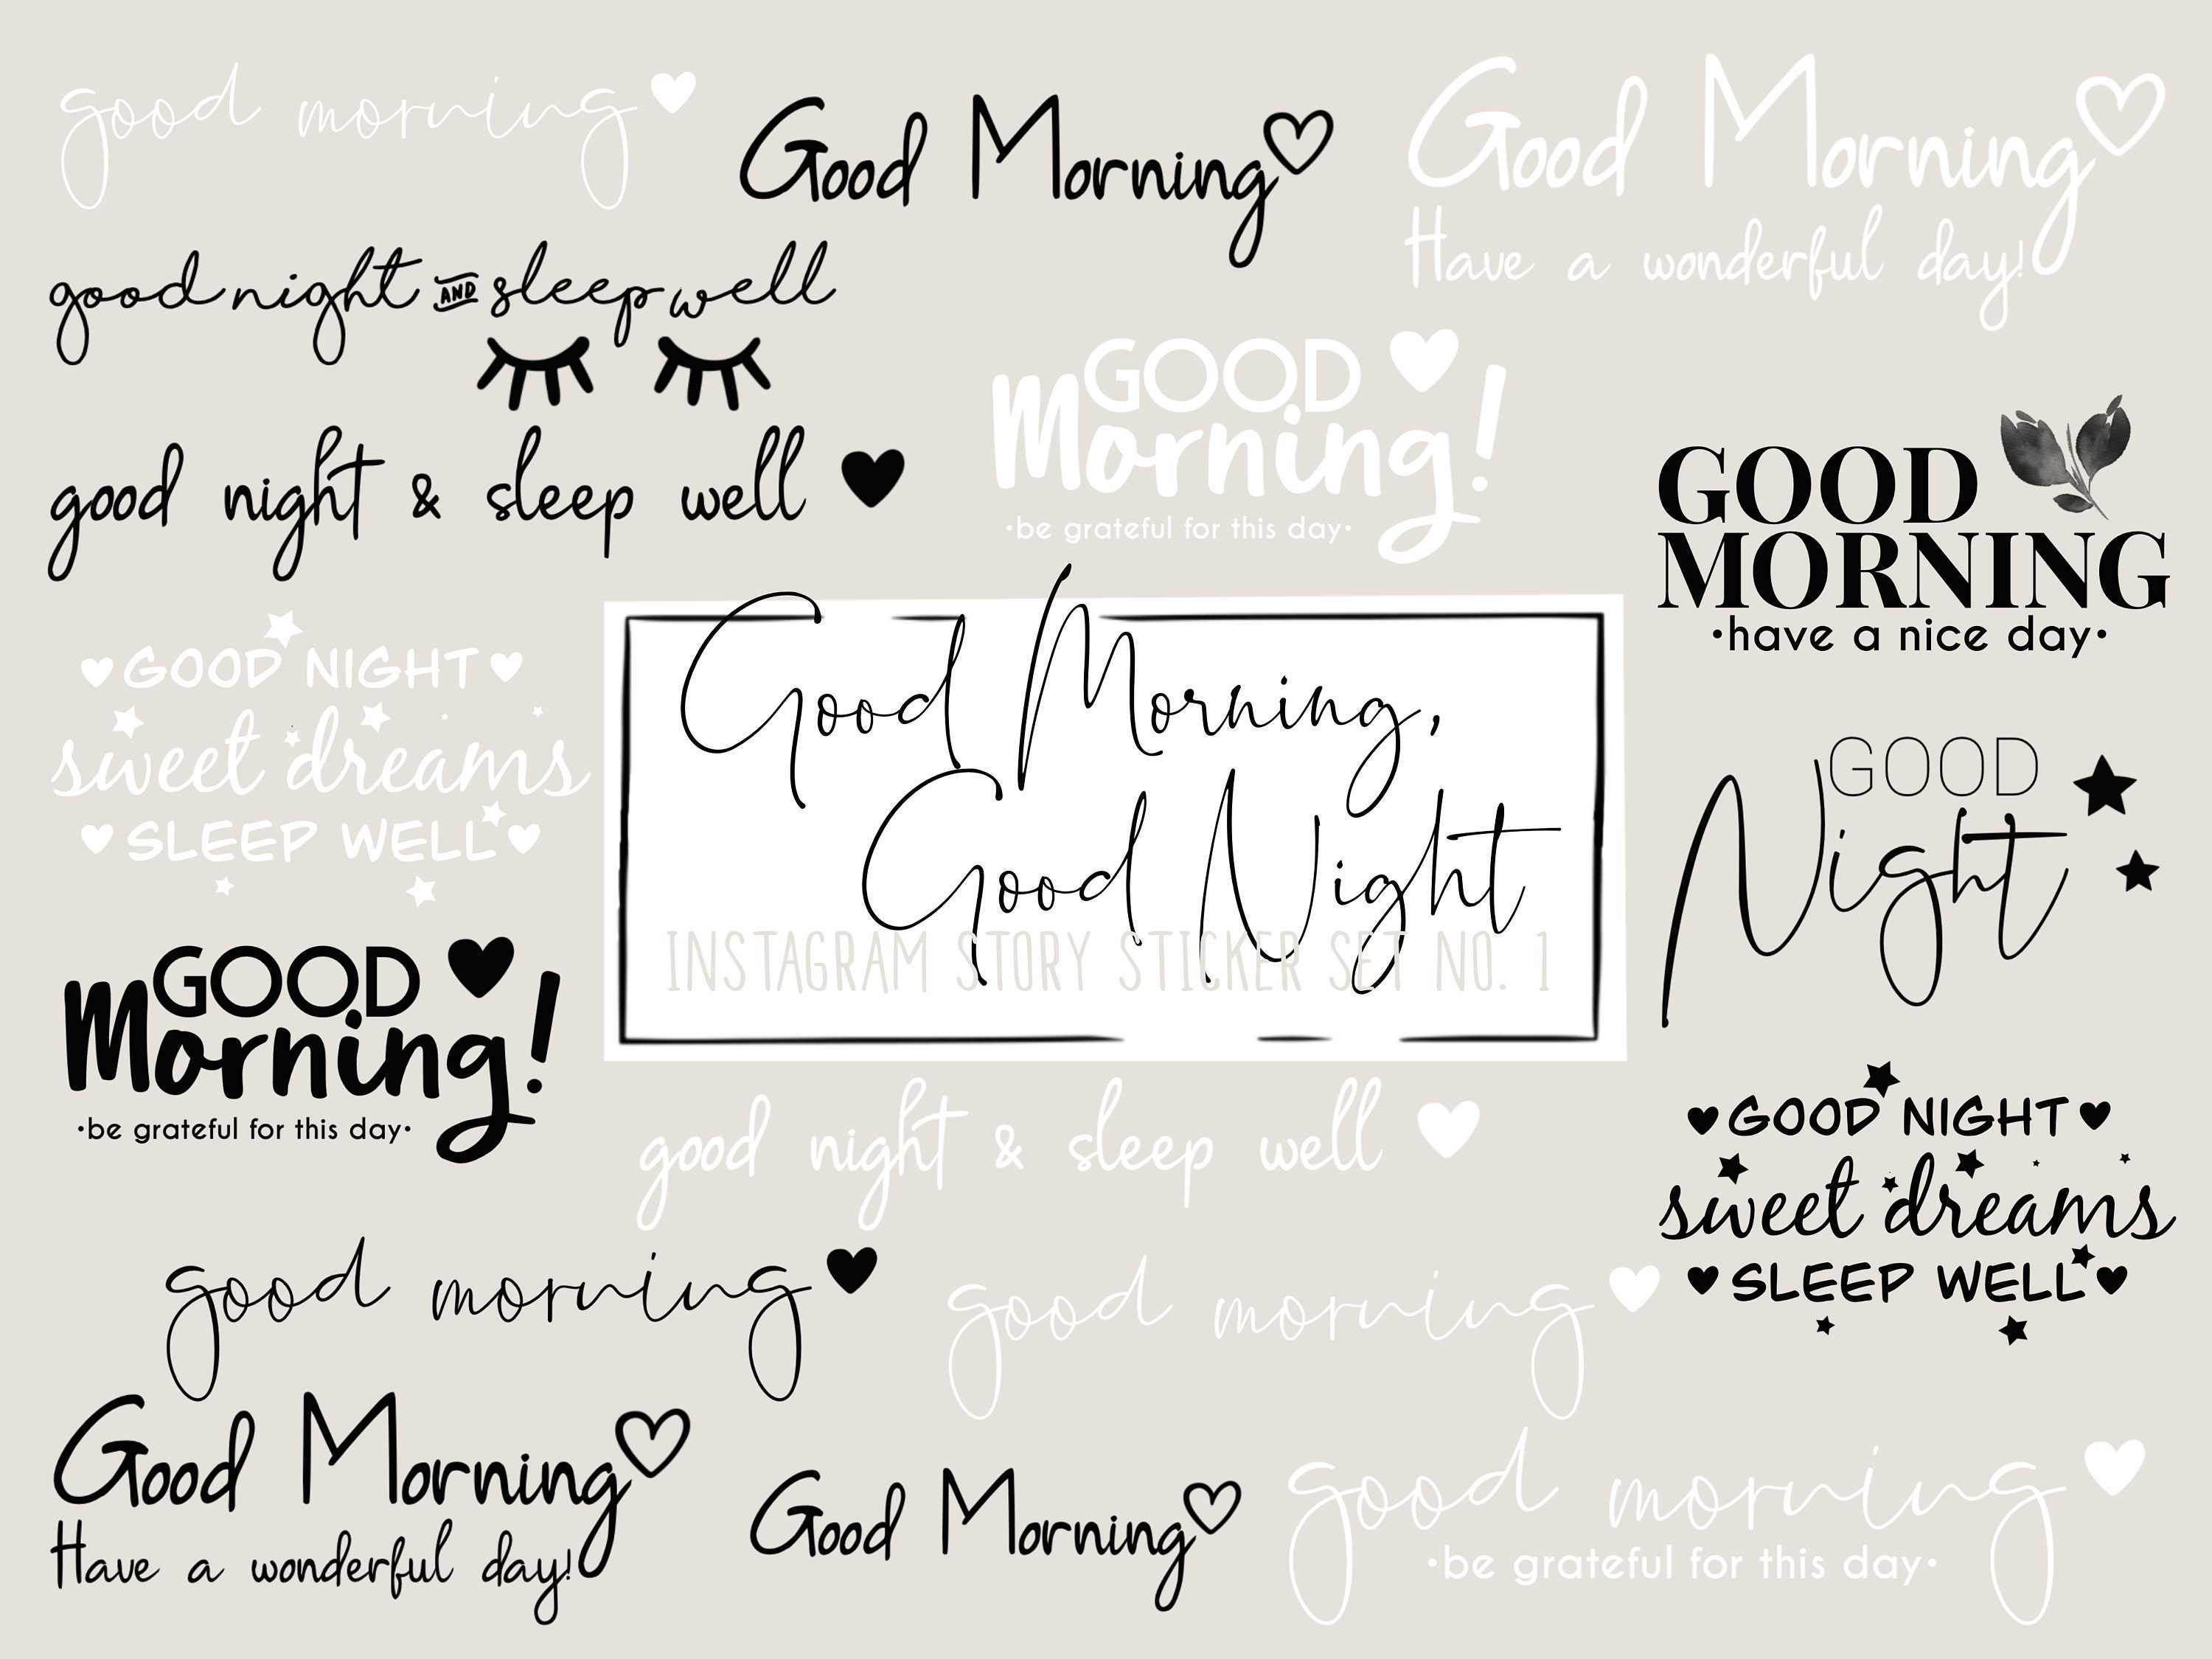 good morning
Good Morning
Good Morning
Have a wonderful day!
good night AND sleep well
GOOD
Morning!
•be grateful for this day•
good night & sleep well
GOOD
MORNING
•have a nice day•
GOOD NIGHT
sweet dreams
SLEEP WELL
Good Morning,
Good Night
INSTAGRAM STORY STICKER SET NO. 1
GOOD
Night
GOOD
Morning!
•be grateful for this day•
good night & sleep well
GOOD NIGHT
sweet dreams
SLEEP WELL
good morning
good morning
Good Morning
Have a wonderful day!
Good Morning
good morning
•be grateful for this day•